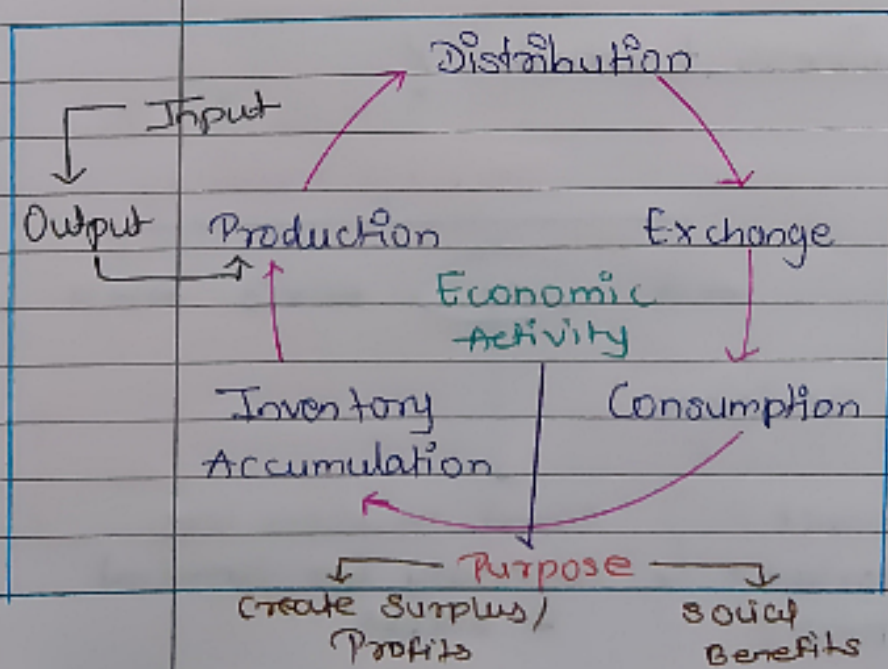 Distribution
Input
Output Production Exchange
Economic
Activity
Inventory Consumption
Accumulation
Purpose
Create Surplus/ Social
Profits Benefits